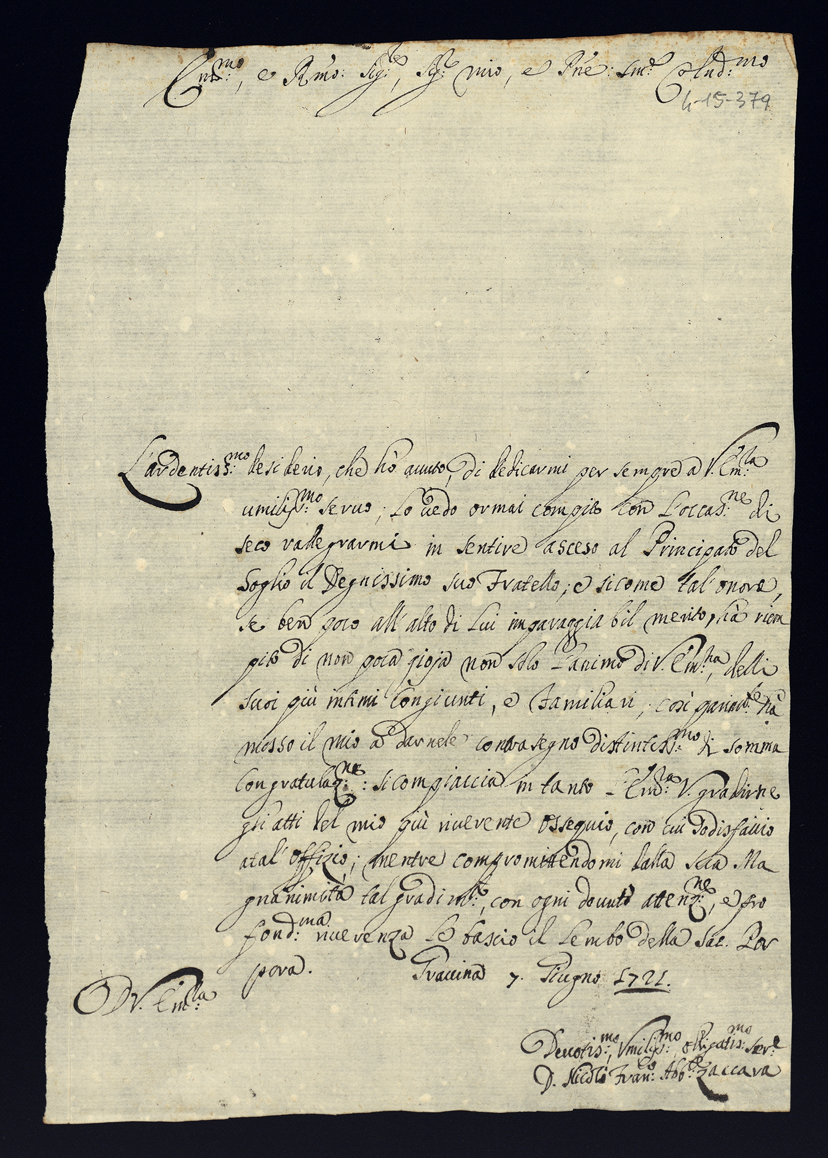 Em:mo, e Rmo: Sig:re, Sig:re mio, e Pne: Sm:o Colnd:mo
4-15-379
L'ardentiss:mo desiderio, che hò auuto, di dedicarmi per sempre à V. Em:za
umiliss:mo seruo; Lo uedo ormai compito con L'occas:ne di
seco rallegrarmi in sentire asceso al Principato del
Soglio il Degnissimo suo Fratello; e sicome tal'onore,
se ben poco all'alto di Lui imparaggiabil merito, hà riem
pito di non poca gioja non solo L'animo di V. Em:za, delli
suoi più intimi Congiunti, e Familiari, così hà
mosso il mio à darnele contrasegno distintiss:mo di somma
Congratulaz:ne: si compiaccia in tanto L'Em:za V. gradirne
gli atti del mio più riuerente osseguio, con cui sodisfaccio
a tal'offizio; mentre compromittendomi dalla Sua Ma
gnanimità tal gradim:to, con ogni douuta attenz:ne, e pro
fond:ma riuerenza Le bascio il Lembo della Sac. Por
pora. Grauina 7. Giugno 1721.
D V. Em:za
Deuotis:mo, Vmiliss:mo, obligatis:mo Ser:e
D. Nicolò Fran:co Abb:e Zaccara